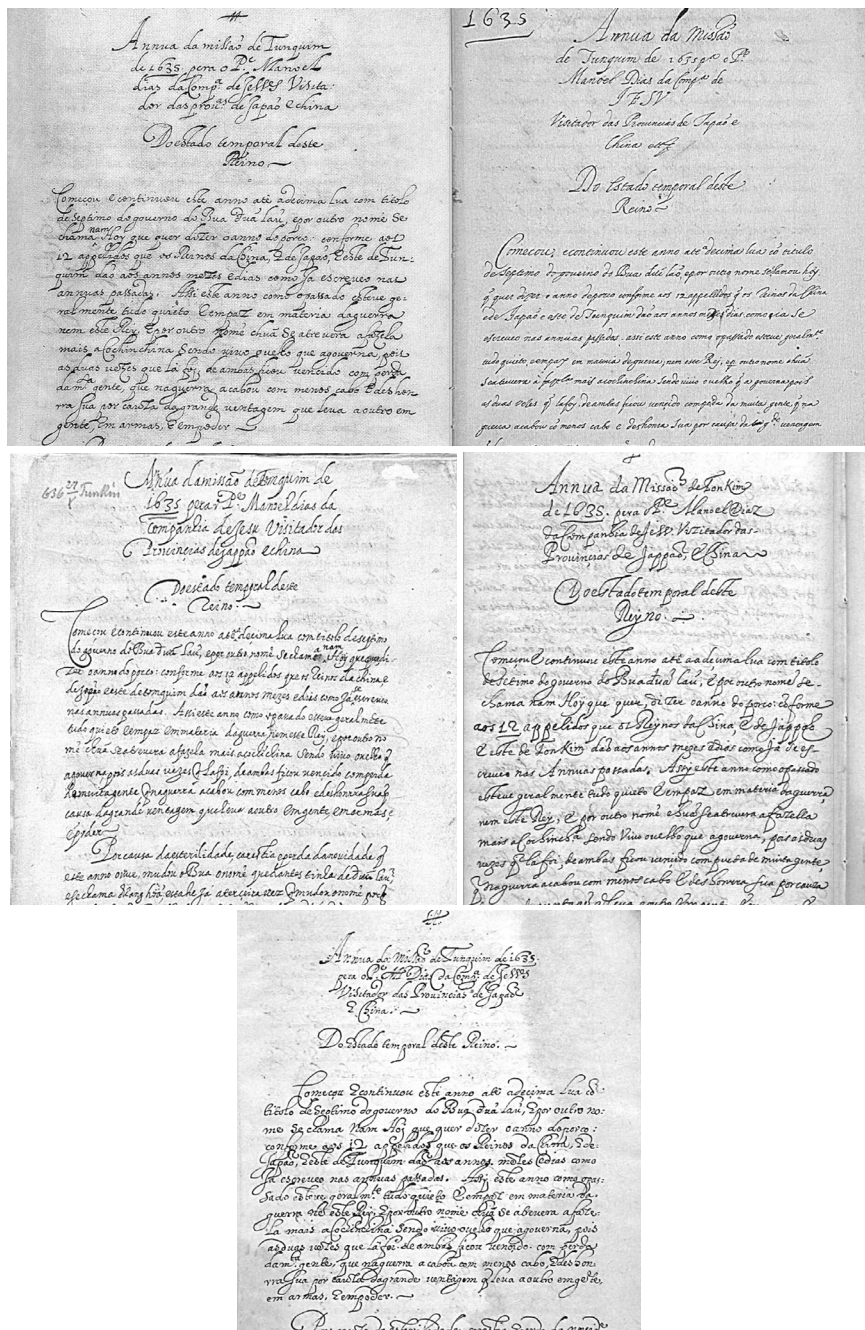 Annua da missão de Tunquim
de 1635. pera o P.e Manoel
dias da Comp.a de Jesus Visita:
dor das prou.as de Japão e china
Do estado temporal deste
Reino
Começou e continuou este anno até a decima lua com titolo
de septimo do governo do Bua Duâ lâu, e por outro nome se
chama nam Hoy que quer dizer o anno do porco: conforme aos
12 appelidos que os Reinos da China, e de Japão, e este de Tun:
quim dão aos annos mezes e dias como ja escreveo nas
annuas passadas. Assi este anno como o passado esteve ge:
ralmente tudo quieto e em paz em materia da guerra
nem este Rey, e por outro nome chuâ se atrevera a fazela
mais a Cochinchina sendo vivo o velho que a governa, pois
as duas vezes que la foi, de ambas ficou vencido com perda
da m.ta gente, que na guerra acabou com menos cabo e deshon
rra sua por causa da grande ventagem que leva a outro em
gente, em armas, e em poder
1635
Annua da Missão
de Tunquim de 1635 p.a o P.e
Manoel Dias da Comp.a de
IESV
Visitador das Provincias de Japão e
China
Do Estado temporal deste
Reino
Começou, e continuou este anno até a decima lua cõ titulo
de Septimo do governo do Bua duâ lâo, e por outro nome se chama nam hoy
q̃ quer dizer o anno do porco conforme aos 12 appellidos q̃ os Reinos da China
e de Japão e este de Tunquim dão aos annos mezes e dias como ja se
escreveo nas annuas passadas. assi este anno como o passado esteve geralm.te
tudo quieto, e em paz em materia de guerra, nem este Rey, e p. outro nome chuâ
se atrevera a fazela mais a cochinchina sendo vivo o velho q̃ a governa pois
as duas vezes q̃ la foy, de ambas ficou vencido com perda da muita gente, q̃ na
guerra acabou cõ menos cabo e deshonra sua por causa da g.de ventagem
636 Tunkin
Annua da missão de Tonquim de
1635 pera o P.e Manoel dias da
Companhia de Jesu Visitador das
Provincias de Jappão e china
Do estado temporal deste
Reino
Começou e continuou este anno até a decima lua com titulo de septimo
do governo do Bua Duâ Lâu, e por outro nome se chama nam Hoy que quer di:
zer o anno do porco: conforme aos 12 appelidos que os Reinos da china e
de Japão e este de tomquim dão aos annos mezes e dias como Ja se escreveo
nas annuas passadas. Assi este anno como o passado esteve geralmente
tudo quieto e em paz em materia da guerra, nem esse Rey, e por outro no
me chuâ se atrevera a fazela mais a cochichina sendo vivo o velho q̃
a governa, pois as duas vezes q̃ la foi, de ambas ficou vencido com perda
da muita gente q̃ na guerra acabou com menos cabo e deshonrra sua por
causa da grande ventagem que leva a outro em gente em armas e
e poder
Por causa da esterilidade, carestia e perda da novidade q̃
este anno ouve, mudou o Bua o nome que dantes tinha de Duâ lâu,
Annua da Missaõ de TonKim
de 1635. pera o P.e Manoel Diaz
da Companhia de Jesu. Vizitador das
Provincias de Jappão, e China
Do estado temporal deste
Reyno.
Começou e continuou este anno até a decima lua com titulo
de setimo do governo do Bua duâ lâu, e por outro nome se
chama nam Hoy que quer dizer o anno do porco: cõforme
aos 12 appelidos que os Reynos da China, e de Jappão
e este de TonKim dão aos annos mezes e dias como Já se es:
creveo nas Annuas passadas. Assy este anno como o passado
esteve geralmente tudo quieto e em paz em materia da guerra,
nem este Rey, e por outro nome chuâ se atrevera a fazella
mais a Cochincha sendo vivo o velho que a governa, pois as duas
vezes q̃ la foi, de ambas ficou vencido com perda de muita gente,
q̃ na guerra acabou com menos cabo e deshonrra sua por causa
Annua da missão de Tunquim de 1635.
pera o P.e M.el Dias da Comp.a de Jesus
Visitador das Provincias de Japão
e China.
Do estado temporal deste Reino.
Começou e continuou este anno até a decima lua cõ
titolo de septimo do governo do Bua duâ lâu, e por outro no:
me se chama Nam Hoy que quer dizer o anno do porco:
conforme aos 12 apelidos que os Reinos da China, e de
Japão, e este de Tunquim dão aos annos mezes e dias como
Ja escreveo nas annuas passadas. Assi este anno como o pas:
sado esteve geralm.te tudo quieto e em paz em materia da
guerra nẽ este Rey, e por outro nome chuâ se atrevera a faze:
la mais a Cochinchina sendo vivo o velho que a governa, pois
as duas vezes que la foi de ambas ficou vencido. com perda
da m.ta gente, que na guerra acabou com menos cabo, e deshon:
rra sua por causa da grande ventagem q̃ leva a outro em gẽte,
em armas, e em poder.